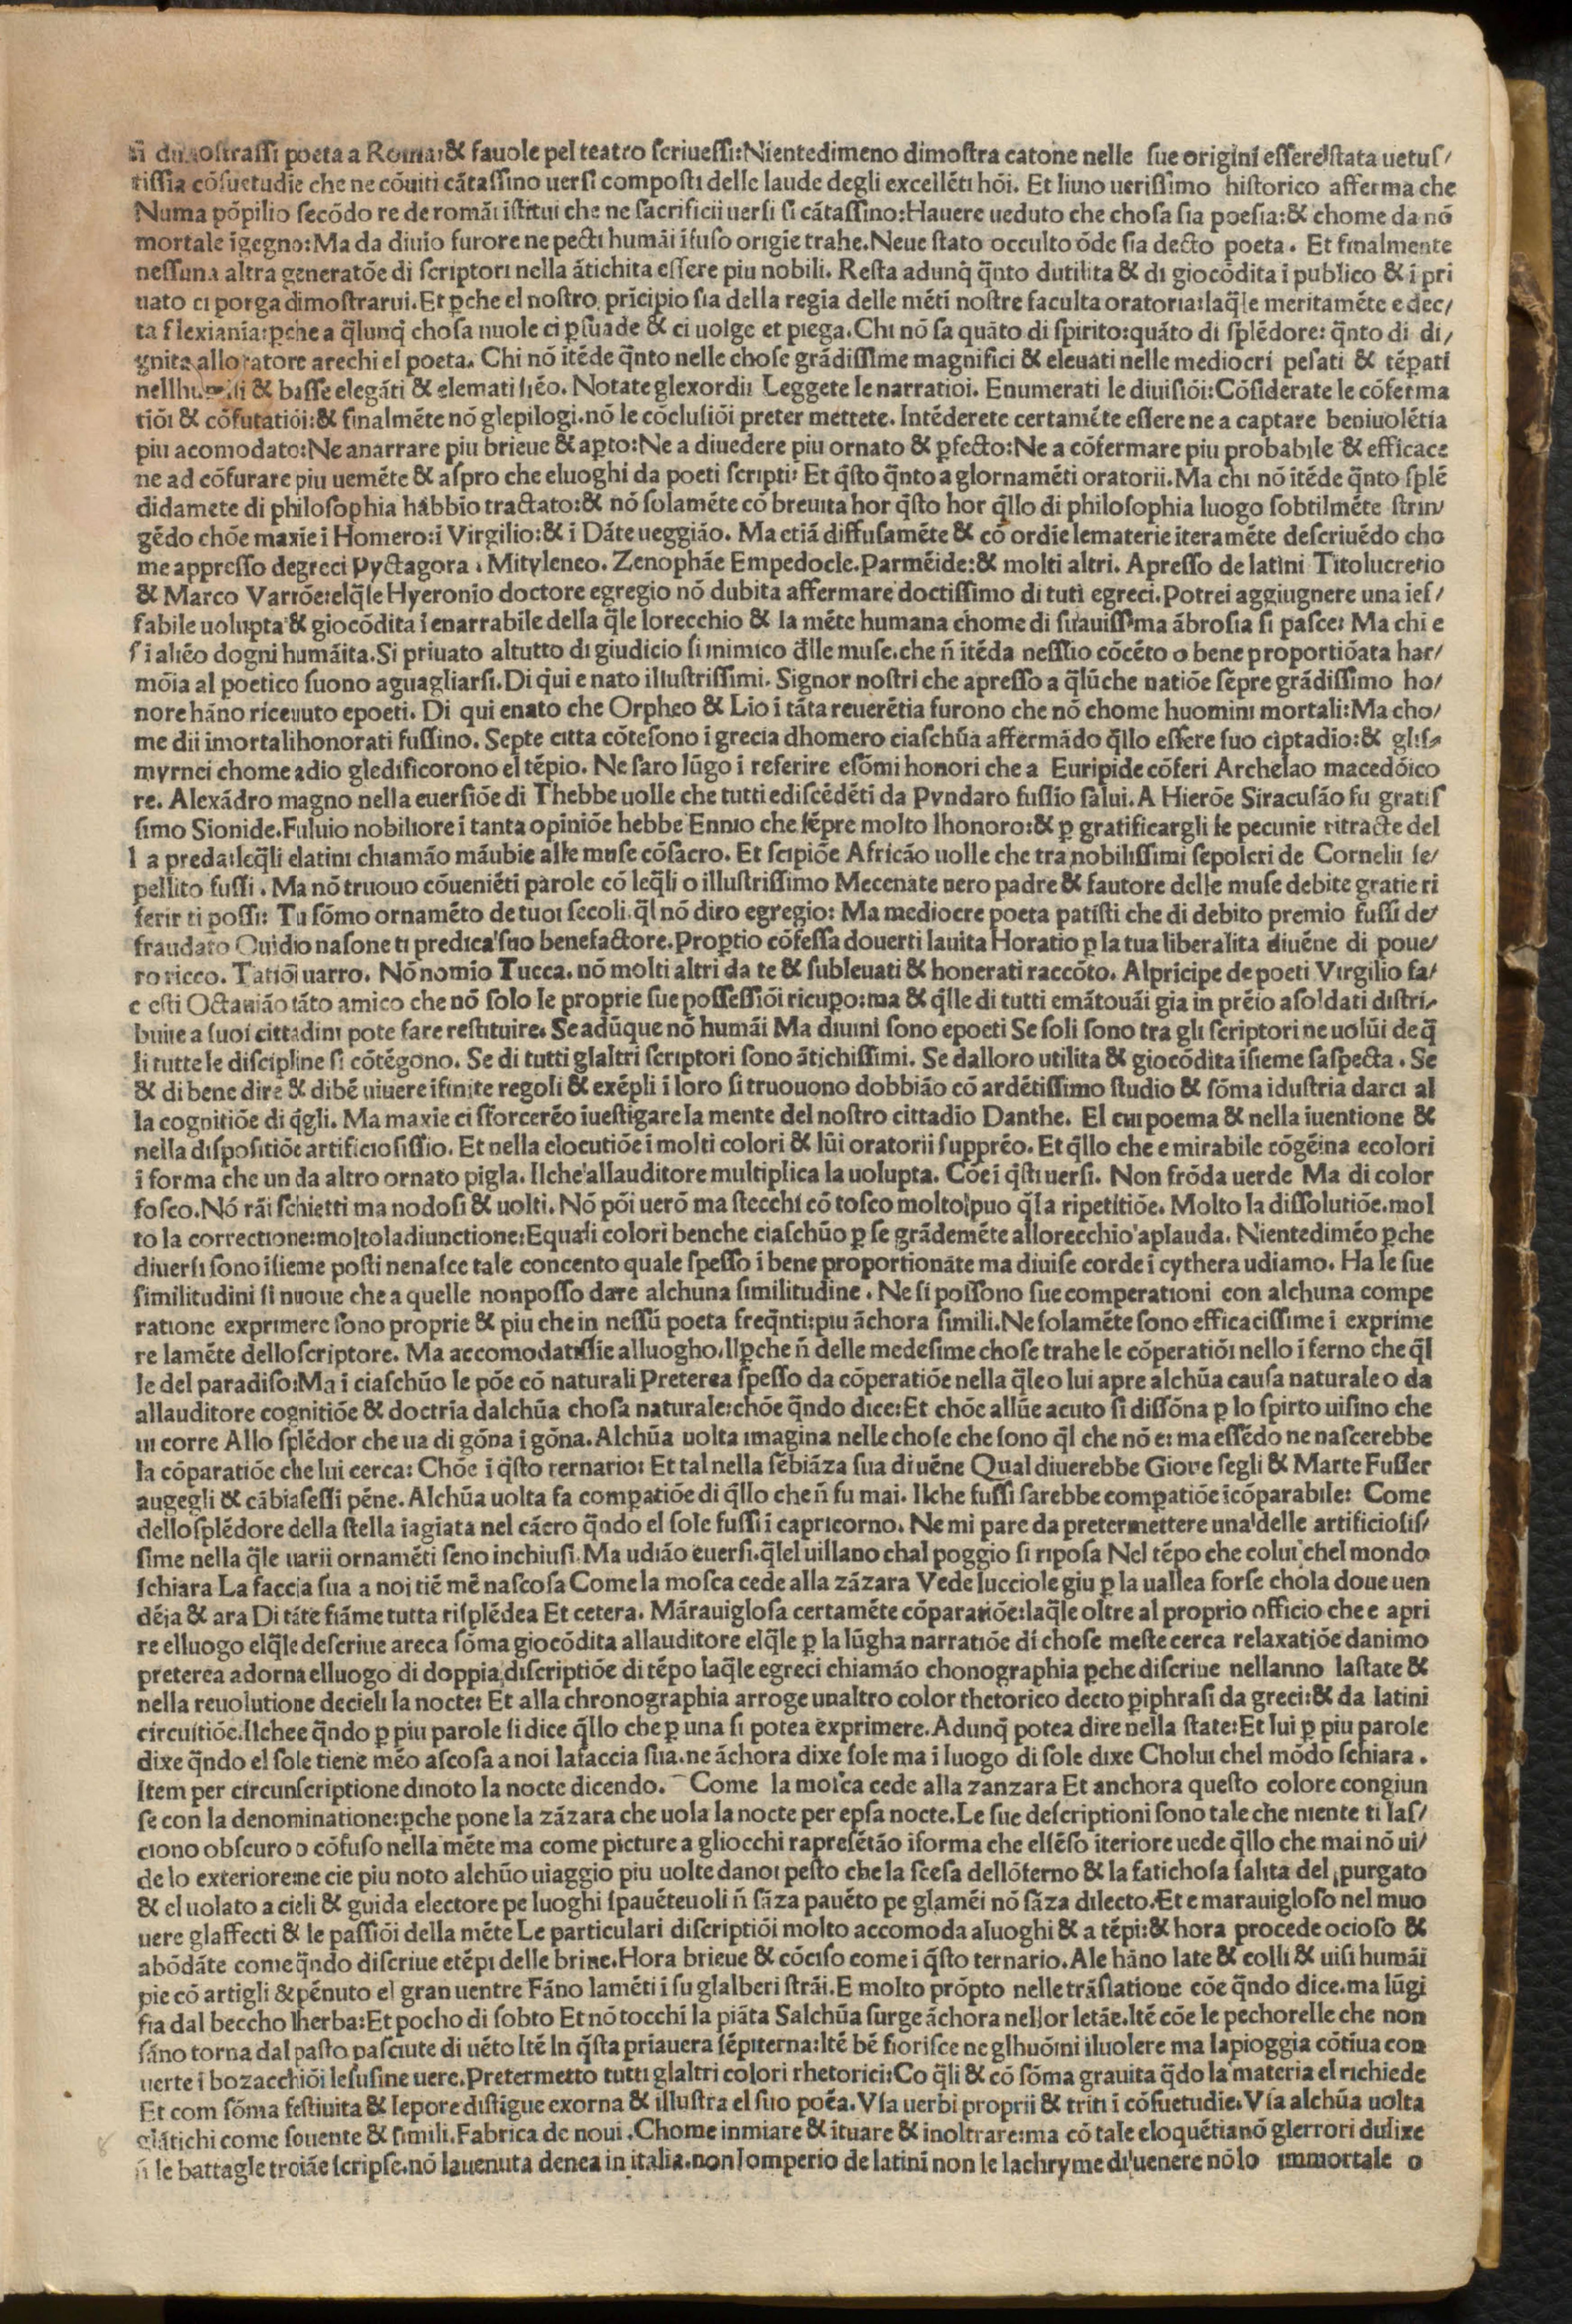 si dimostrassi poeta a Roma:& fauole pel teatro scriuessi:Nientedimeno dimostra catone nelle sue origini essere stata uetus/
tissia cõsuetudie che ne cõuiti cãtassino uersi composti delle laude degli excellẽti hõi. Et liuio uerissimo historico afferma che
Numa põpilio secõdo re de romãi ĩstitui che ne sacrificii uersi si cãtassino:Hauere ueduto che chosa sia poesia:& chome da nõ
mortale ĩgegno:Ma da diuio furore ne pecti humãi ĩfuso origĩe trahe.Neue stato occulto õde sia decto poeta. Et finalmente
nessuna altra generatõe di scriptori nella ãtichita essere piu nobili. Resta adunq̃ q̃nto dutilita & di giocõdita i publico & i pri
uato ci porga dimostrarui.Et p̱che el nostro prĩcipio sia della regia delle mẽti nostre faculta oratoria:laq̃le meritamẽte e dec/
ta flexianĩa:p̱che a q̃lunq̃ chosa uuole ci p̱suade & ci uolge et piega.Chi nõ sa quãto di spirito:quãto di splẽdore: q̃nto di di/
gnita allo ratore arechi el poeta. Chi nõ ĩtẽde q̃nto nelle chose grãdissime magnifici & eleuati nelle mediocri pesati & tẽpati
nellhumili & basse elegãti & elemati siẽo. Notate glexordii Leggete le narratioi. Enumerati le diuisiõi:Cõsiderate le cõferma
tiõi & cõfutatiõi:& finalmẽte nõ glepilogi.nõ le cõclusiõi preter mettete. Intẽderete certamẽte essere ne a captare beniuolẽtia
piu acomodato:Ne anarrare piu brieue & ap̱to:Ne a diuedere piu ornato & p̱fecto:Ne a cõfermare piu probabile & efficace
ne ad cõfurare piu uemẽte & aspro che eluoghi da poeti scripti: Et q̃sto q̃nto a glornamẽti oratorii.Ma chi nõ ĩtẽde q̃nto splẽ
didamete di philosophia hãbbio tractato:& nõ solamẽte cõ breuita hor q̃sto hor q̃llo di philosophia luogo sobtilmẽte strin/
gẽdo chõe maxie i Homero:i Virgilio:& i Dãte ueggião. Ma etiã diffusamẽte & cõ ordĩe lematerie iteramẽte descriuẽdo cho
me appresso degreci Pyctagora. Mityleneo. Zenophãe Empedocle.Parmẽide:& molti altri. Apresso de latini Titolucretio
& Marco Varrõe:elq̃le Hyeronio doctore egregio nõ dubita affermare doctissimo di tuti egreci.Potrei aggiugnere una ief/
fabile uolupta & giocõdita ĩ enarrabile della q̃le lorecchio & la mẽte humana chome di suauissima ãbrosia si pasce: Ma chi e
s i aliẽo dogni humãita.Si priuato altutto di giudicio si inimico d̃lle muse.che ñ ĩtẽda nessũo cõcẽto o bene proportiõata har/
mõia al poetico suono aguagliarsi.Di q̃ui e nato illustrissimi. Signor nostri che apresso a q̃lũche natiõe sẽpre grãdissimo ho/
nore hãno riceuuto epoeti. Di qui enato che Orpheo & Lio i tãta reuerẽtia furono che nõ chome huomini mortali:Ma cho/
me dii imortalihonorati fussino. Septe citta cõtesono ĩ grecia dhomero ciaschũa affermãdo q̃llo essere suo ciptadio:& glis/
myrnei chome adio gledificorono el tẽpio. Ne saro lũgo i referire esõmi honori che a Euripide cõferi Archelao macedõico
re. Alexãdro magno nella euersiõe di Thebbe uolle che tutti ediscẽdẽti da Pyndaro fussĩo salui.A Hierõe Siracusão fu gratis
simo Sionide.Fuluio nobiliore i tanta opiniõe hebbe Ennio che sẽpre molto lhonoro:& p̱ gratificargli le pecunie ritracte del
l a preda:leq̃li elatini chiamão mãubie alle muse cõsacro. Et scipiõe Africão uolle che tra nobilissimi sepolcri de Cornelii se/
pellito fussi. Ma nõ truouo cõueniẽti parole cõ leq̃li o illustrissimo Mecenate uero padre & fautore delle muse debite gratie ri
ferir ti possi: Tu sõmo ornamẽto de tuoi secoli.q̃l nõ diro egregio: Ma mediocre poeta patisti che di debito premio fussi de/
fraudato Ouidio nasone ti predica suo benefactore.Prop̱tio cõfessa douerti lauita Horatio p̱ la tua liberalita diuẽne di poue/
ro ricco. Tatiõi uarro. Nõ nomio Tucca. nõ molti altri da te & subleuati & honerati raccõto. Alprĩcipe de poeti Virgilio fa/
c esti Octauião tãto amico che nõ solo le proprie sue possessiõi ricup̱o:ma & q̃lle di tutti emãtouãi gia in prẽio asoldati distri/
buite a suoi cittadini pote fare restituire. Se adũque nõ humãi Ma diuini sono epoeti Se soli sono tra gli scriptori ne uolũi de q̃
li tutte le discipline si cõtẽgono. Se di tutti glaltri scriptori sono ãtichissimi. Se dalloro utilita & giocõdita ĩsieme saspecta. Se
& di bene dire & dibẽ uiuere ĩfinite regoli & exẽpli ĩ loro si truouono dobbião cõ ardẽtissimo studio & sõma ĩdustria darci al
la cognitiõe di q̃gli. Ma maxie ci sforcerẽo ĩuestigare la mente del nostro cittadĩo Danthe. El cui poema & nella iuentione &
nella dispositiõe artificiosissĩo. Et nella elocutiõe i molti colori & lũi oratorii supprẽo. Et q̃llo che e mirabile cõgẽina ecolori
i forma che un da altro ornato pigla. Ilche allauditore multiplica la uolupta. Cõe i q̃sti uersi. Non frõda uerde Ma di color
fosco.Nõ rãi schietti ma nodosi & uolti. Nõ põi uerõ ma stecchi cõ tosco molto puo q̃la ripetitiõe. Molto la dissolutiõe.mol
to la correctione:moltoladiunctione:Equali colori benche ciaschũo p̱ se grãdemẽte allorecchio aplauda. Nientedimẽo p̱che
diuersi sono ĩsieme posti nenasce tale concento quale spesso i bene proportionãte ma diuise corde i cythera udiamo. Ha le sue
similitudini si nuoue che a quelle nonposso dare alchuna similitudine. Ne si possono sue comperationi con alchuna compe
ratione exprimere sono proprie & piu che in nessũ poeta freq̃nti:piu ãchora simili.Ne solamẽte sono efficacissime i exprime
re lamẽte delloscriptore. Ma accomodatissĩe alluogho.Ilp̱che ñ delle medesime chose trahe le cõperatiõi nello ĩ ferno che q̃l
le del paradiso:Ma i ciaschũo le põe cõ naturali Preterea spesso da cõperatiõe nella q̃leo lui apre alchũa causa naturale o da
allauditore cognitiõe & doctrĩa dalchũa chosa naturale:chõe q̃ndo dice:Et chõe allũe acuto si dissõna p̱ lo spirto uisiuo che
ui corre Allo splẽdor che ua di gõna i gõna.Alchũa uolta imagina nelle chose che sono q̃l che nõ e: ma essẽdo ne nascerebbe
la cõparatiõe che lui cerca: Chõe i q̃sto ternario: Et tal nella sẽbiãza sua di uẽne Qual diuerebbe Gioue segli & Marte Fusser
augegli & cãbiasessi pẽne. Alchũa uolta fa comp̱atiõe di q̃llo che ñ fu mai. Ilche fussi sarebbe comp̱atiõe ĩcõparabile: Come
dellosplẽdore della stella iagiata nel cãcro q̃ndo el sole fussi i capricorno. Ne mi pare da pretermettere una delle artificiosis/
sime nella q̃le uarii ornamẽti seno inchiusi.Ma udião euersi.q̃lel uillano chal poggio si riposa Nel tẽpo che colui chel mondo
schiara La faccia sua a noi tiẽ mẽ nascosa Come la mosca cede alla zãzara Vede lucciole giu p̱ la uallea forse chola doue uen
dẽia & ara Di tãte fiãme tutta risplẽdea Et cetera. Mãrauiglosa certamẽte cõparatiõe:laq̃le oltre al proprio officio che e apri
re elluogo elq̃le descriue areca sõma giocõdita allauditore elq̃le p̱ la lũgha narratiõe di chose meste cerca relaxatiõe danimo
preterea adorna elluogo di doppia discriptiõe di tẽpo laq̃le egreci chiamão chonographia p̱che discriue nellanno lastate &
nella reuolutione decieli la nocte: Et alla chronographia arroge unaltro color rhetorico decto p̱iphrasi da greci:& da latini
circuitiõe.Ilchee q̃ndo p̱ piu parole si dice q̃llo che p̱ una si potea exprimere.Adunq̃ potea dire nella state:Et lui p̱ piu parole
dixe q̃ndo el sole tiene mẽo ascosa a noi lafaccia sua.ne ãchora dixe sole ma i luogo di sole dixe Cholui chel mõdo schiara.
Item per circunscriptione dinoto la nocte dicendo. Come la mosca cede alla zanzara Et anchora questo colore congiun
se con la denominatione:p̱che pone la zãzara che uola la nocte per epsa nocte.Le sue descriptioni sono tale che niente ti las/
ciono obscuro o cõfuso nella mẽte ma come picture a gliocchi rapresẽtão ĩforma che elsẽso ĩteriore uede q̃llo che mai nõ ui/
de lo exteriore:ne cie piu noto alchũo uiaggio piu uolte danoi pesto che la scesa dellõferno & la fatichosa salita del purgato
& el uolato a cieli & guida electore pe luoghi spauẽteuoli ñ sãza pauẽto pe glamẽi nõ sãza dilecto.Et e marauigloso nel muo
uere glaffecti & le passiõi della mẽte Le particulari discriptiõi molto accomoda aluoghi & a tẽpi:& hora procede ocioso &
abõdãte come q̃ndo discriue etẽpi delle brine.Hora brieue & cõciso come i q̃sto ternario. Ale hãno late & colli & uisi humãi
pie cõ artigli & pẽnuto el gran uentre Fãno lamẽti i su glalberi strãi.E molto prõpto nelle trãslatione cõe q̃ndo dice.ma lũgi
fia dal beccho lherba:Et pocho di sobto Et nõ tocchi la piãta Salchũa surge ãchora nellor letãe.Itẽ cõe le pechorelle che non
sãno torna dal pasto pasciute di uẽto Itẽ In q̃sta priauera sẽpiterna:Itẽ bẽ fiorisce ne glhuõini iluolere ma lapioggia cõtĩua con
uerte i bozacchiõi lesusine uere.Pretermetto tutti glaltri colori rhetorici:Co q̃li & cõ sõma grauita q̃do la materia el richiede
Et com sõma festiuita & lepore distigue exorna & illustra el suo poẽa.Vsa uerbi proprii & triti i cõsuetudie.Vsa alchũa uolta
glãtichi come souente & simili.Fabrica de noui.Chome inmiare & ituare & inoltrare:ma cõ tale eloquẽtianõ glerrori dulixe
ñ le battagle troiãe scripse.nõ lauenuta denea in italia.non lomperio de latini non le lachryme di uenere nõlo immortale o